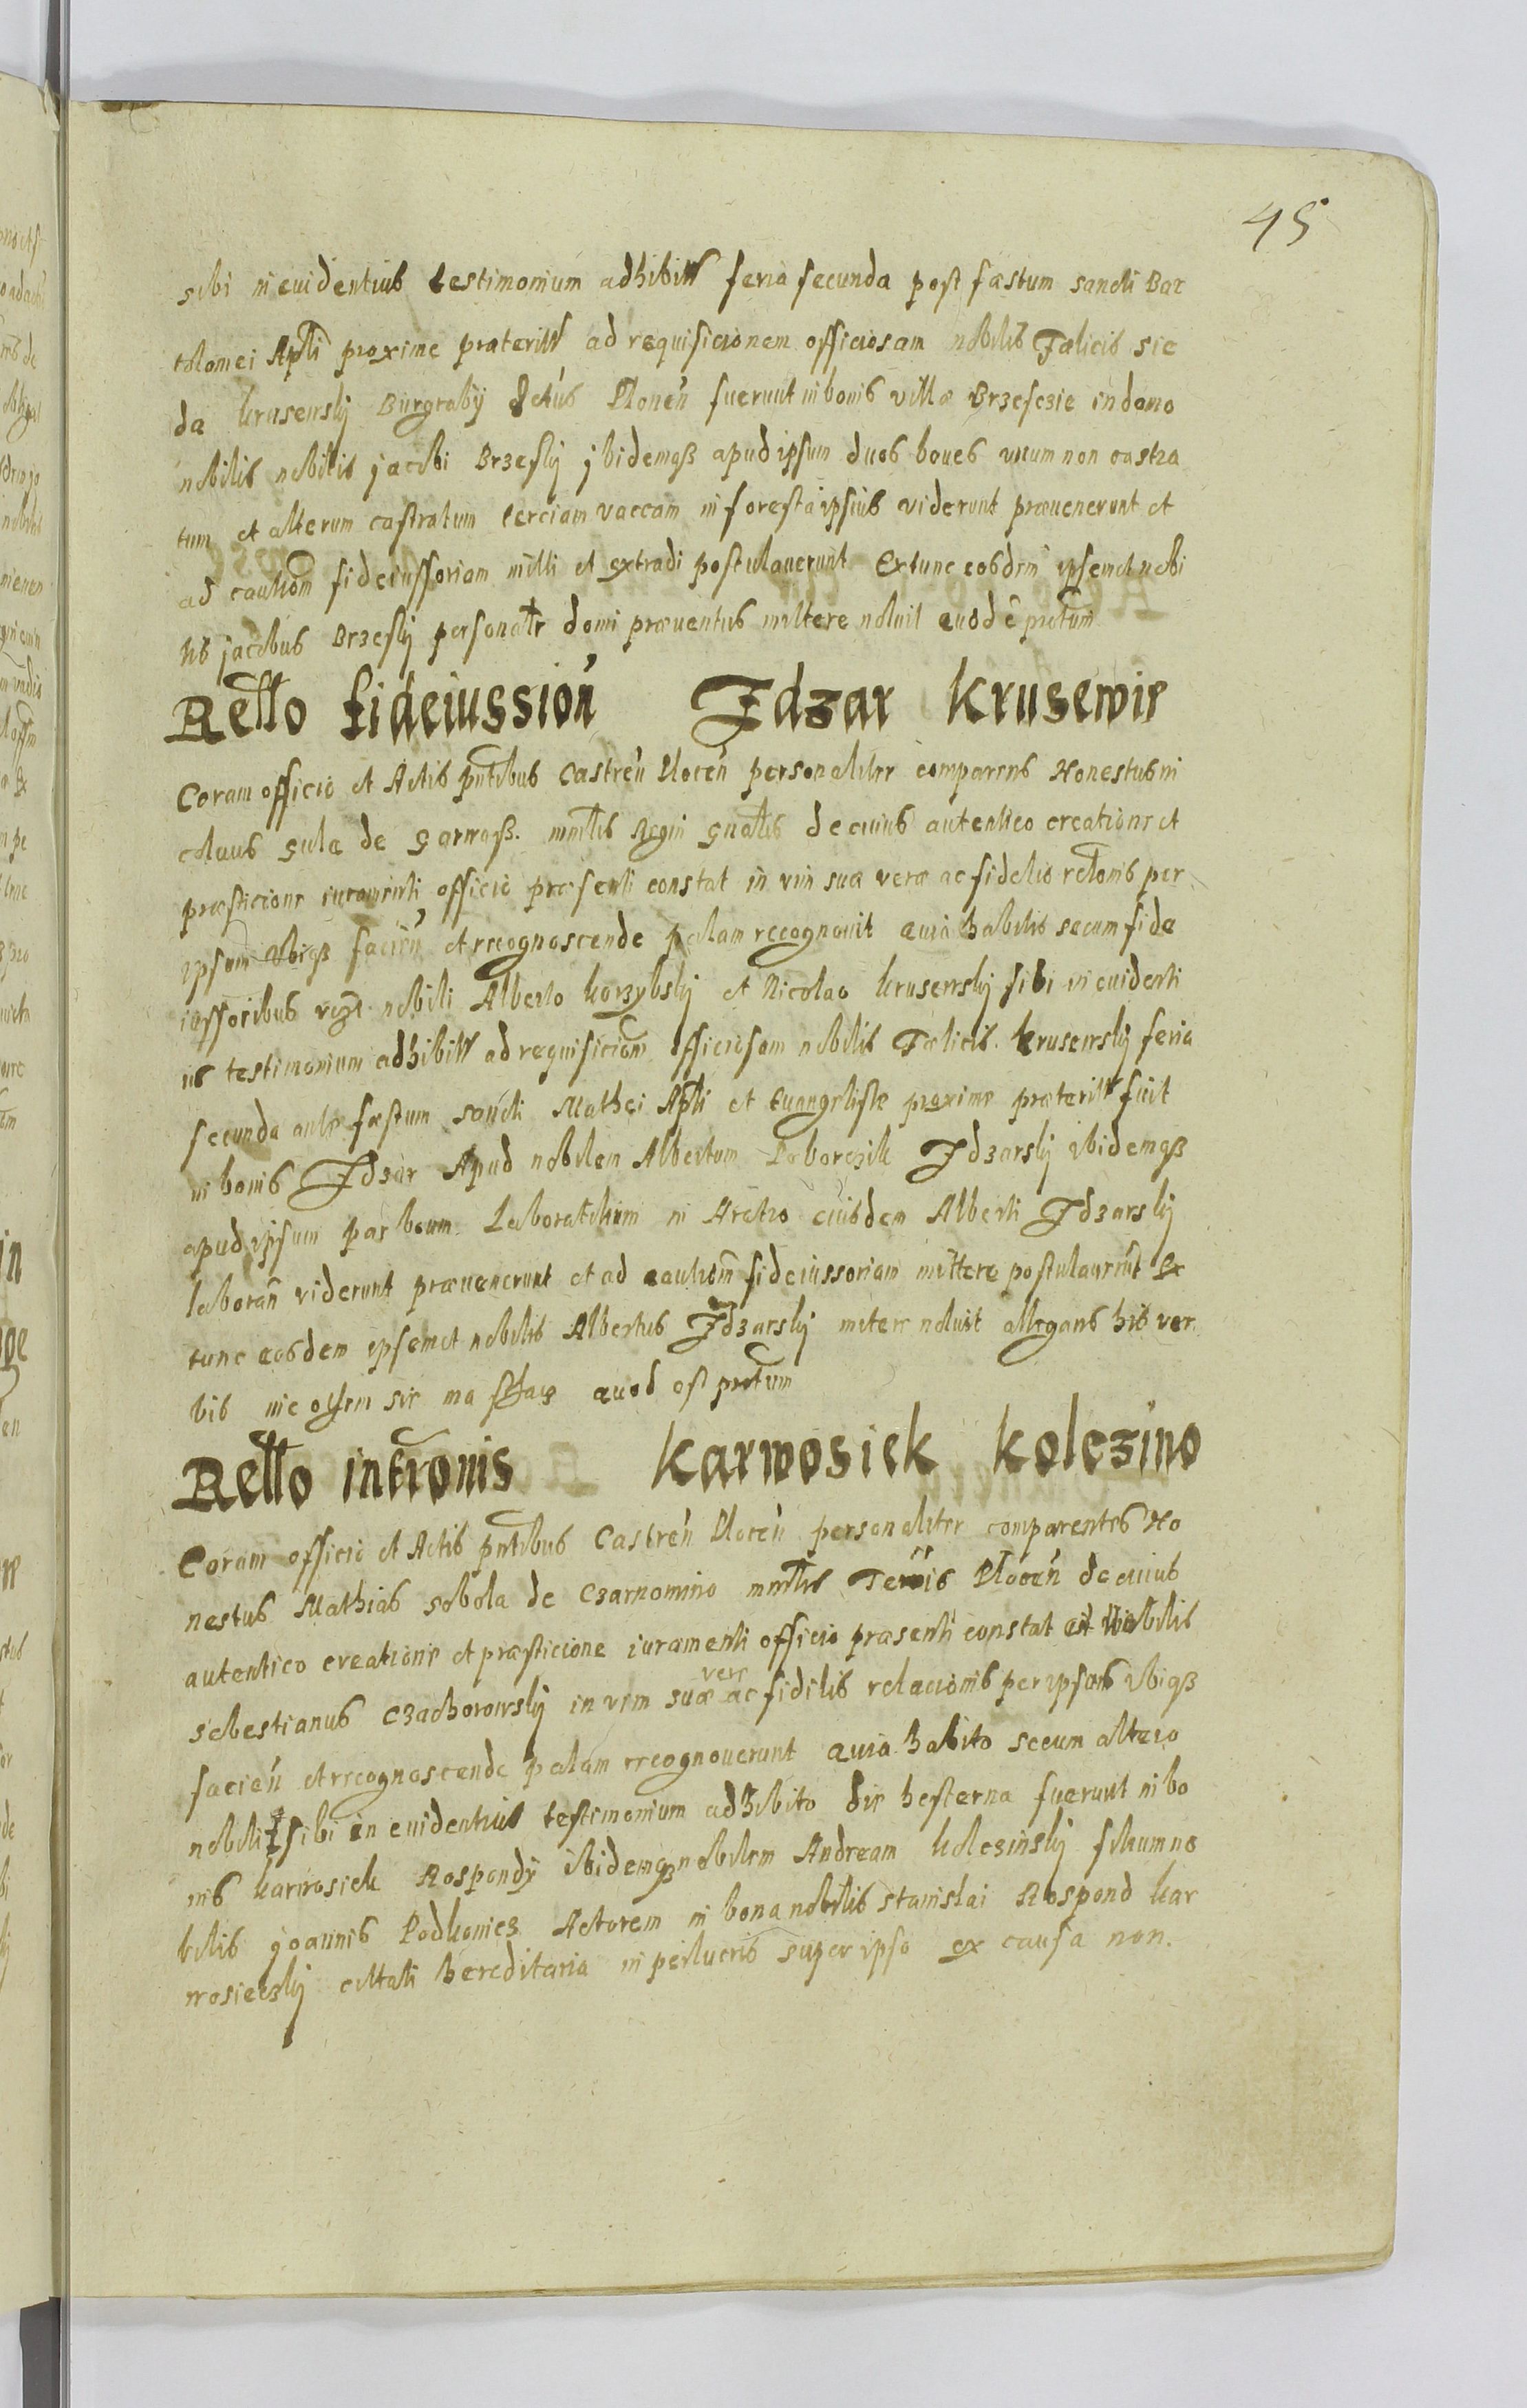 45
sibi in euidentius testimonium adhibitis feria secunda post fæstum sancti Bar
tolomei Apłi proxime præteritis ad requisicionem officiosam nobilis Fælicis sie
da Krusewskij Burgrabij Plonen̄ fuerunt in bonis villæ Brzesczie in domo
nobilis nobilis jacobi Brzeskij jbidemqȝ apud ipsum duos boues vnum non castra
tum et alterum castratum terciam vaccam in foresta ipsius viderunt præuenerunt et
ad cautiom̄ fideiussoriam mitti et extradi postulauerunt Extunc eosdem ipsemet nobi
lis jacobus Brzeskij personaltr domi præuentus mittere noluit quod ē prætum
Rełło fideiussion̄ Idzar Krusewie
Coram officio et Actis pn̄tibus Castren̄ Plocen̄ personaliter comparens Honestus ni
colaus gula de Garwaß. mnrłis Regni gnałis de cuius autentico creatione et
præsticione iuramenti officio præsenti constat in vim suæ veræ ac fidelis relōnis per
ipsum vbiqȝ facien̄ et recognoscende palam recognouit quia habitis secum fide
iussoribus vczt nobili Alberto Korzybskij et Nicolao Krusewskij sibi in euidenti
us testimonium adhibitis ad requisiciom̄ officiosam nobilis Fælicis Krusewskij feria
secunda ante fæstum sancti Mathei Apłi et Euangelistæ proxime præteritis fuit
in bonis Idzar Apud nobilem Albertum Idzarskij ibidemqȝ
apud ipsum par boum Laboratilium in Aratro eiusdem Alberti Idzarskij
laboran̄ viderunt præuenerunt et ad cautiom̄ fideiussoriam mittere postulauerunt Ex
tunc eosdem ipsemet nobilis Albertus Idzarskij mitere noluit allegans his ver
bis nie ma quod est prætum
Rełło intronis Karwosiek Kolczino
Coram officio et Actis pn̄tibus Castren̄ Plocen̄ personaliter comparentes Ho
nestus Mathias sobola de Czarnomino mnrłis Terris Plocen̄ de cuius
autentico creatione et præsticione iuramenti officio præsenti constat et Nobilis
sebestianus Czachorowskij in vim suæ vere ac fidilis relacionis per ipsos vbiqȝ
facien̄ et recognoscende palam recognouerunt quia habito secum altero
nobili sibi in euidentius testimonium adhibito die hesterna fuerunt in bo
nis Karwosiek Rospondÿ ibidemqȝ nobilem Andream Kolczinskij filium no
bilis joannis Podkonicz Actorem in bona nobilis stanislai Rospond Kar
wosieczkij hereditaria in perlucris super ipso ex causa non.